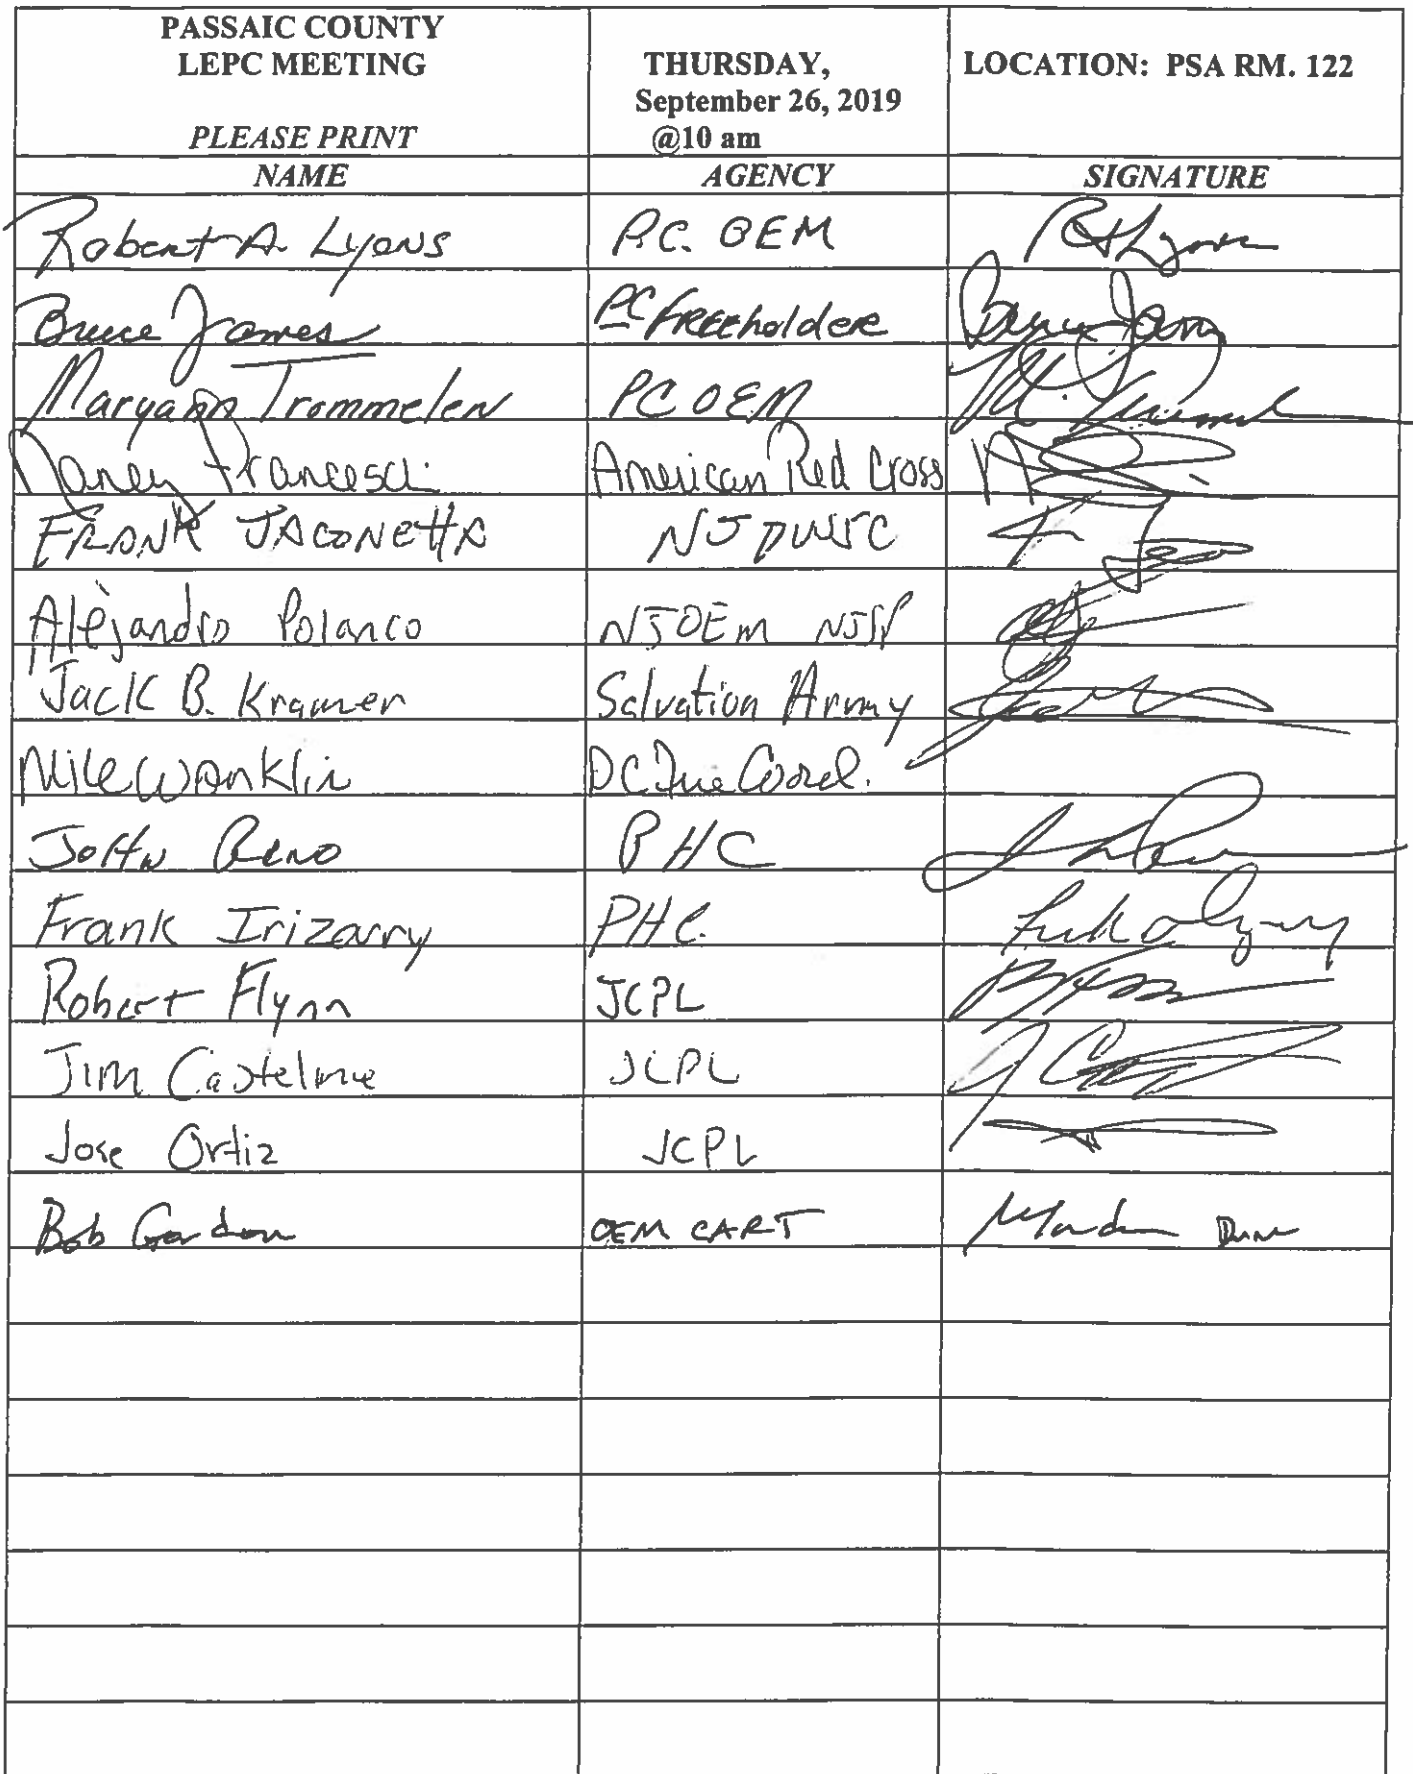 PASSAIC COUNTY
LEPC MEETING
PLEASE PRINT
THURSDAY,
September 26, 2019
@10 am
LOCATION: PSA RM. 122
NAME AGENCY SIGNATURE
Robert A. Lyons P.C. OEM
Bruce James PC Freeholder Bruce James
Maryann Trommelen PC OEM
Nancy Franceschi American Red Cross
FRANK JACONETTA NJ DWSC
Alejandro Polanco NJOEM NJSP
Jack B. Kramer Salvation Army
Mike Wanklin PC Fire Coord.
JOHN Reno PHC
Frank Irizarry PHC.
Robert Flynn JCPL
Jim Castelme JCPL
Jose Ortiz JCPL
Bob Gordon OEM CART